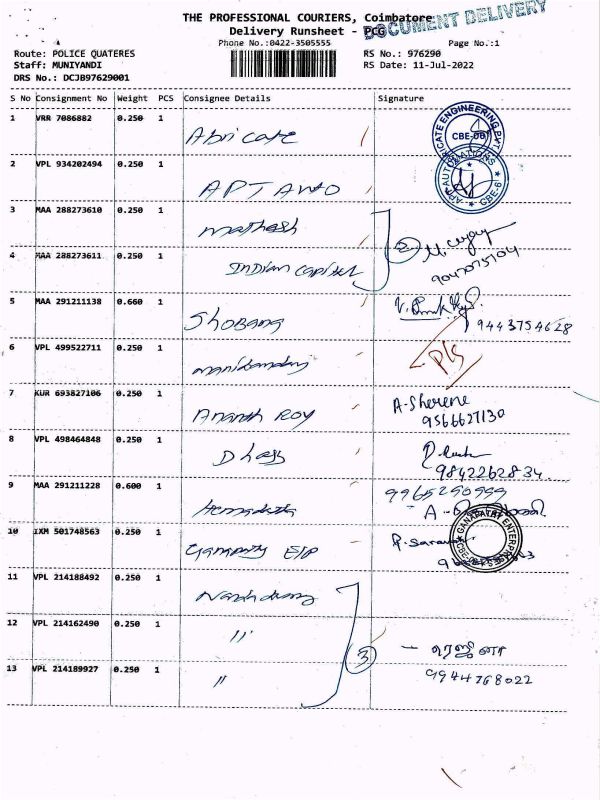 THE PROFESSIONAL COURIERS, Coimbatore
DOCUMENT DELIVERY
Delivery Runsheet - PCG
Phone No.:0422-3505555
Page No.:1
Route: POLICE QUATERES
RS No.: 976290
Staff: MUNIYANDI
RS Date: 11-Jul-2022
DRS No.: DCJB97629001
S No Consignment No Weight PCS Consignee Details Signature
1 VRR 7086882 0.250 1 Abricate
CBE-06
2 VPL 934202494 0.250 1 APT AUTO
CBE-6
3 MAA 288273610 0.250 1 Mathesh
4 MAA 288273611 0.250 1 Indian Capital
2
9047075104
5 MAA 291211138 0.660 1 Shobana
9443754628
6 VPL 499522711 0.250 1 Manikandan
7 KUR 693827106 0.250 1 Anandh Roy
A. Sherene
9566627130
8 VPL 498464848 0.250 1 Dhass
9842262834
9 MAA 291211228 0.600 1
9965290999
10 IXM 501748563 0.250 1 Ganapathy ETP
GANAPATHY ENTERPR
11 VPL 214188492 0.250 1
12 VPL 214162490 0.250 1 "
3
- ரெஜினா
13 VPL 214189927 0.250 1 "
9944768022